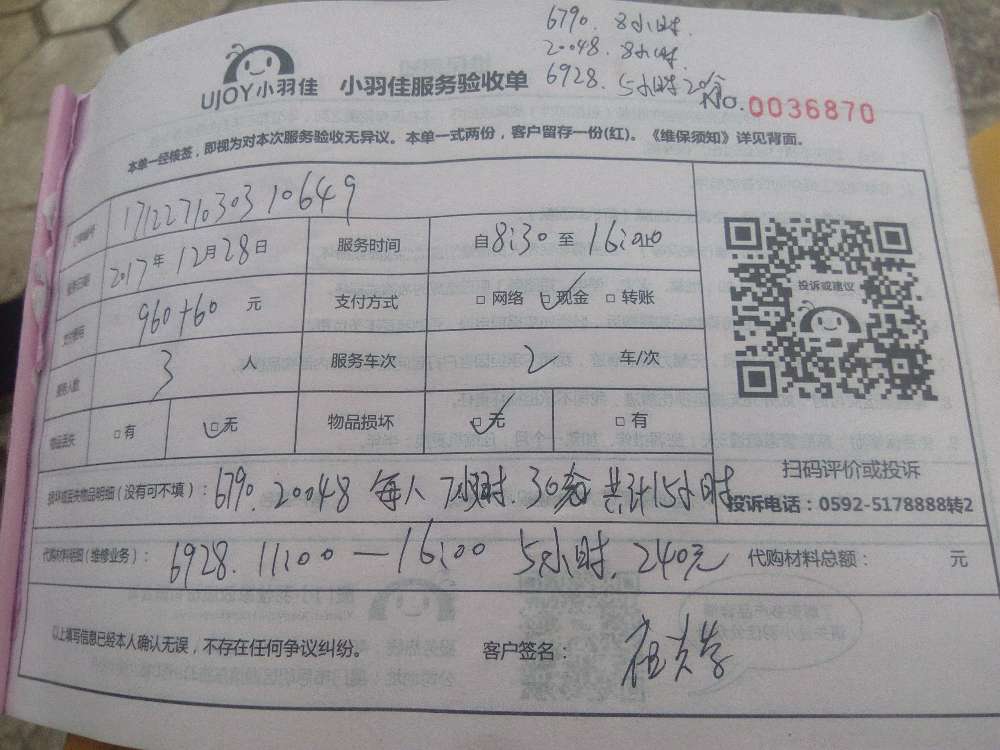 6790. 8小时.
20048. 8小时.
6928. 5小时20分
UJOY小羽佳 小羽佳服务验收单
No.0036870
本单一经核签，即视为对本次服务验收无异议。本单一式两份，客户留存一份(红)。《维保须知》详见背面。
17122710303 10649
2017年12月28日 服务时间 自8:30至16:00
960+60 元 支付方式 □网络 ☑现金 □转账
3 人 服务车次 2 车/次
物品丢失 □有 ☑无 物品损坏 ☑无 □有
投诉或建议
扫码评价或投诉
投诉电话：0592-5178888转2
损坏或丢失物品明细(没有可不填)：6790. 20048 每人7小时.30分 共计15小时
代购材料明细(维修业务)：6928. 11:00—16:00 5小时. 240元 代购材料总额： 元
以上填写信息已经本人确认无误，不存在任何争议纠纷。 客户签名：